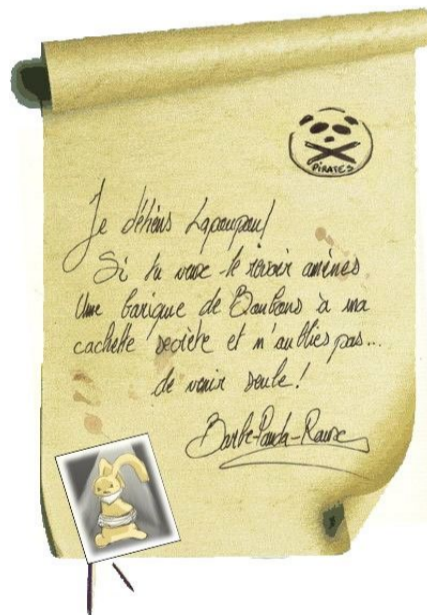 PIRATES
Je détiens Lapoupou!
Si tu veux le revoir amènes
Une barique de Bonbons à ma
cachette secrète et n'oublies pas...
de venir seule!
Barbe-Panda-Rousse